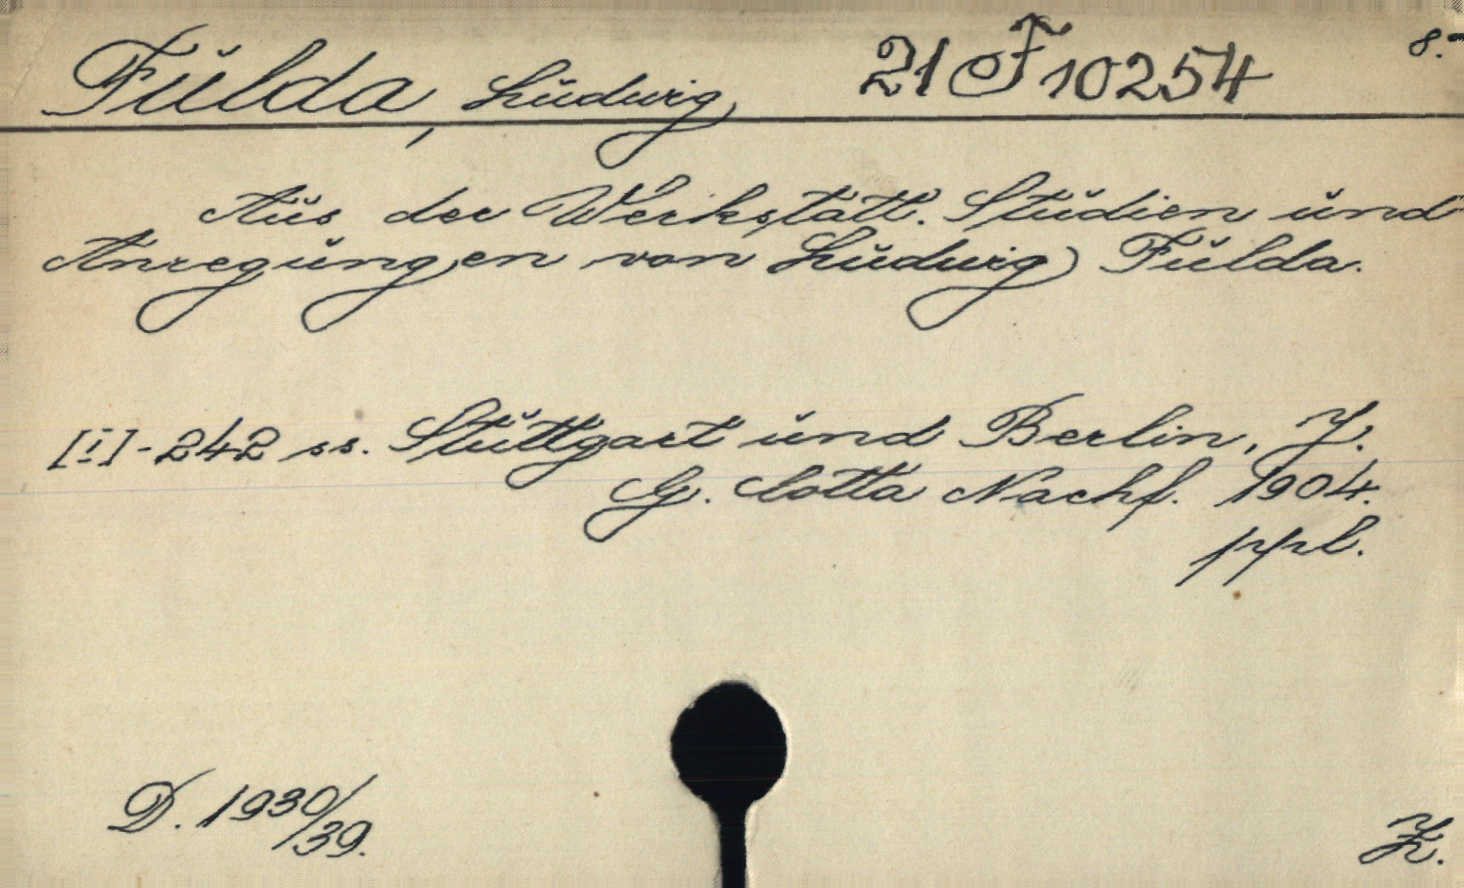 Fulda, Ludwig 21 F 10254 8.-
Aus der Werkstatt. Studien und
Anregungen von Ludwig Fulda.
[I]-242 ss. Stuttgart und Berlin, J.
G. Cotta Nachf. 1904.
ppl.
D. 1930/39.